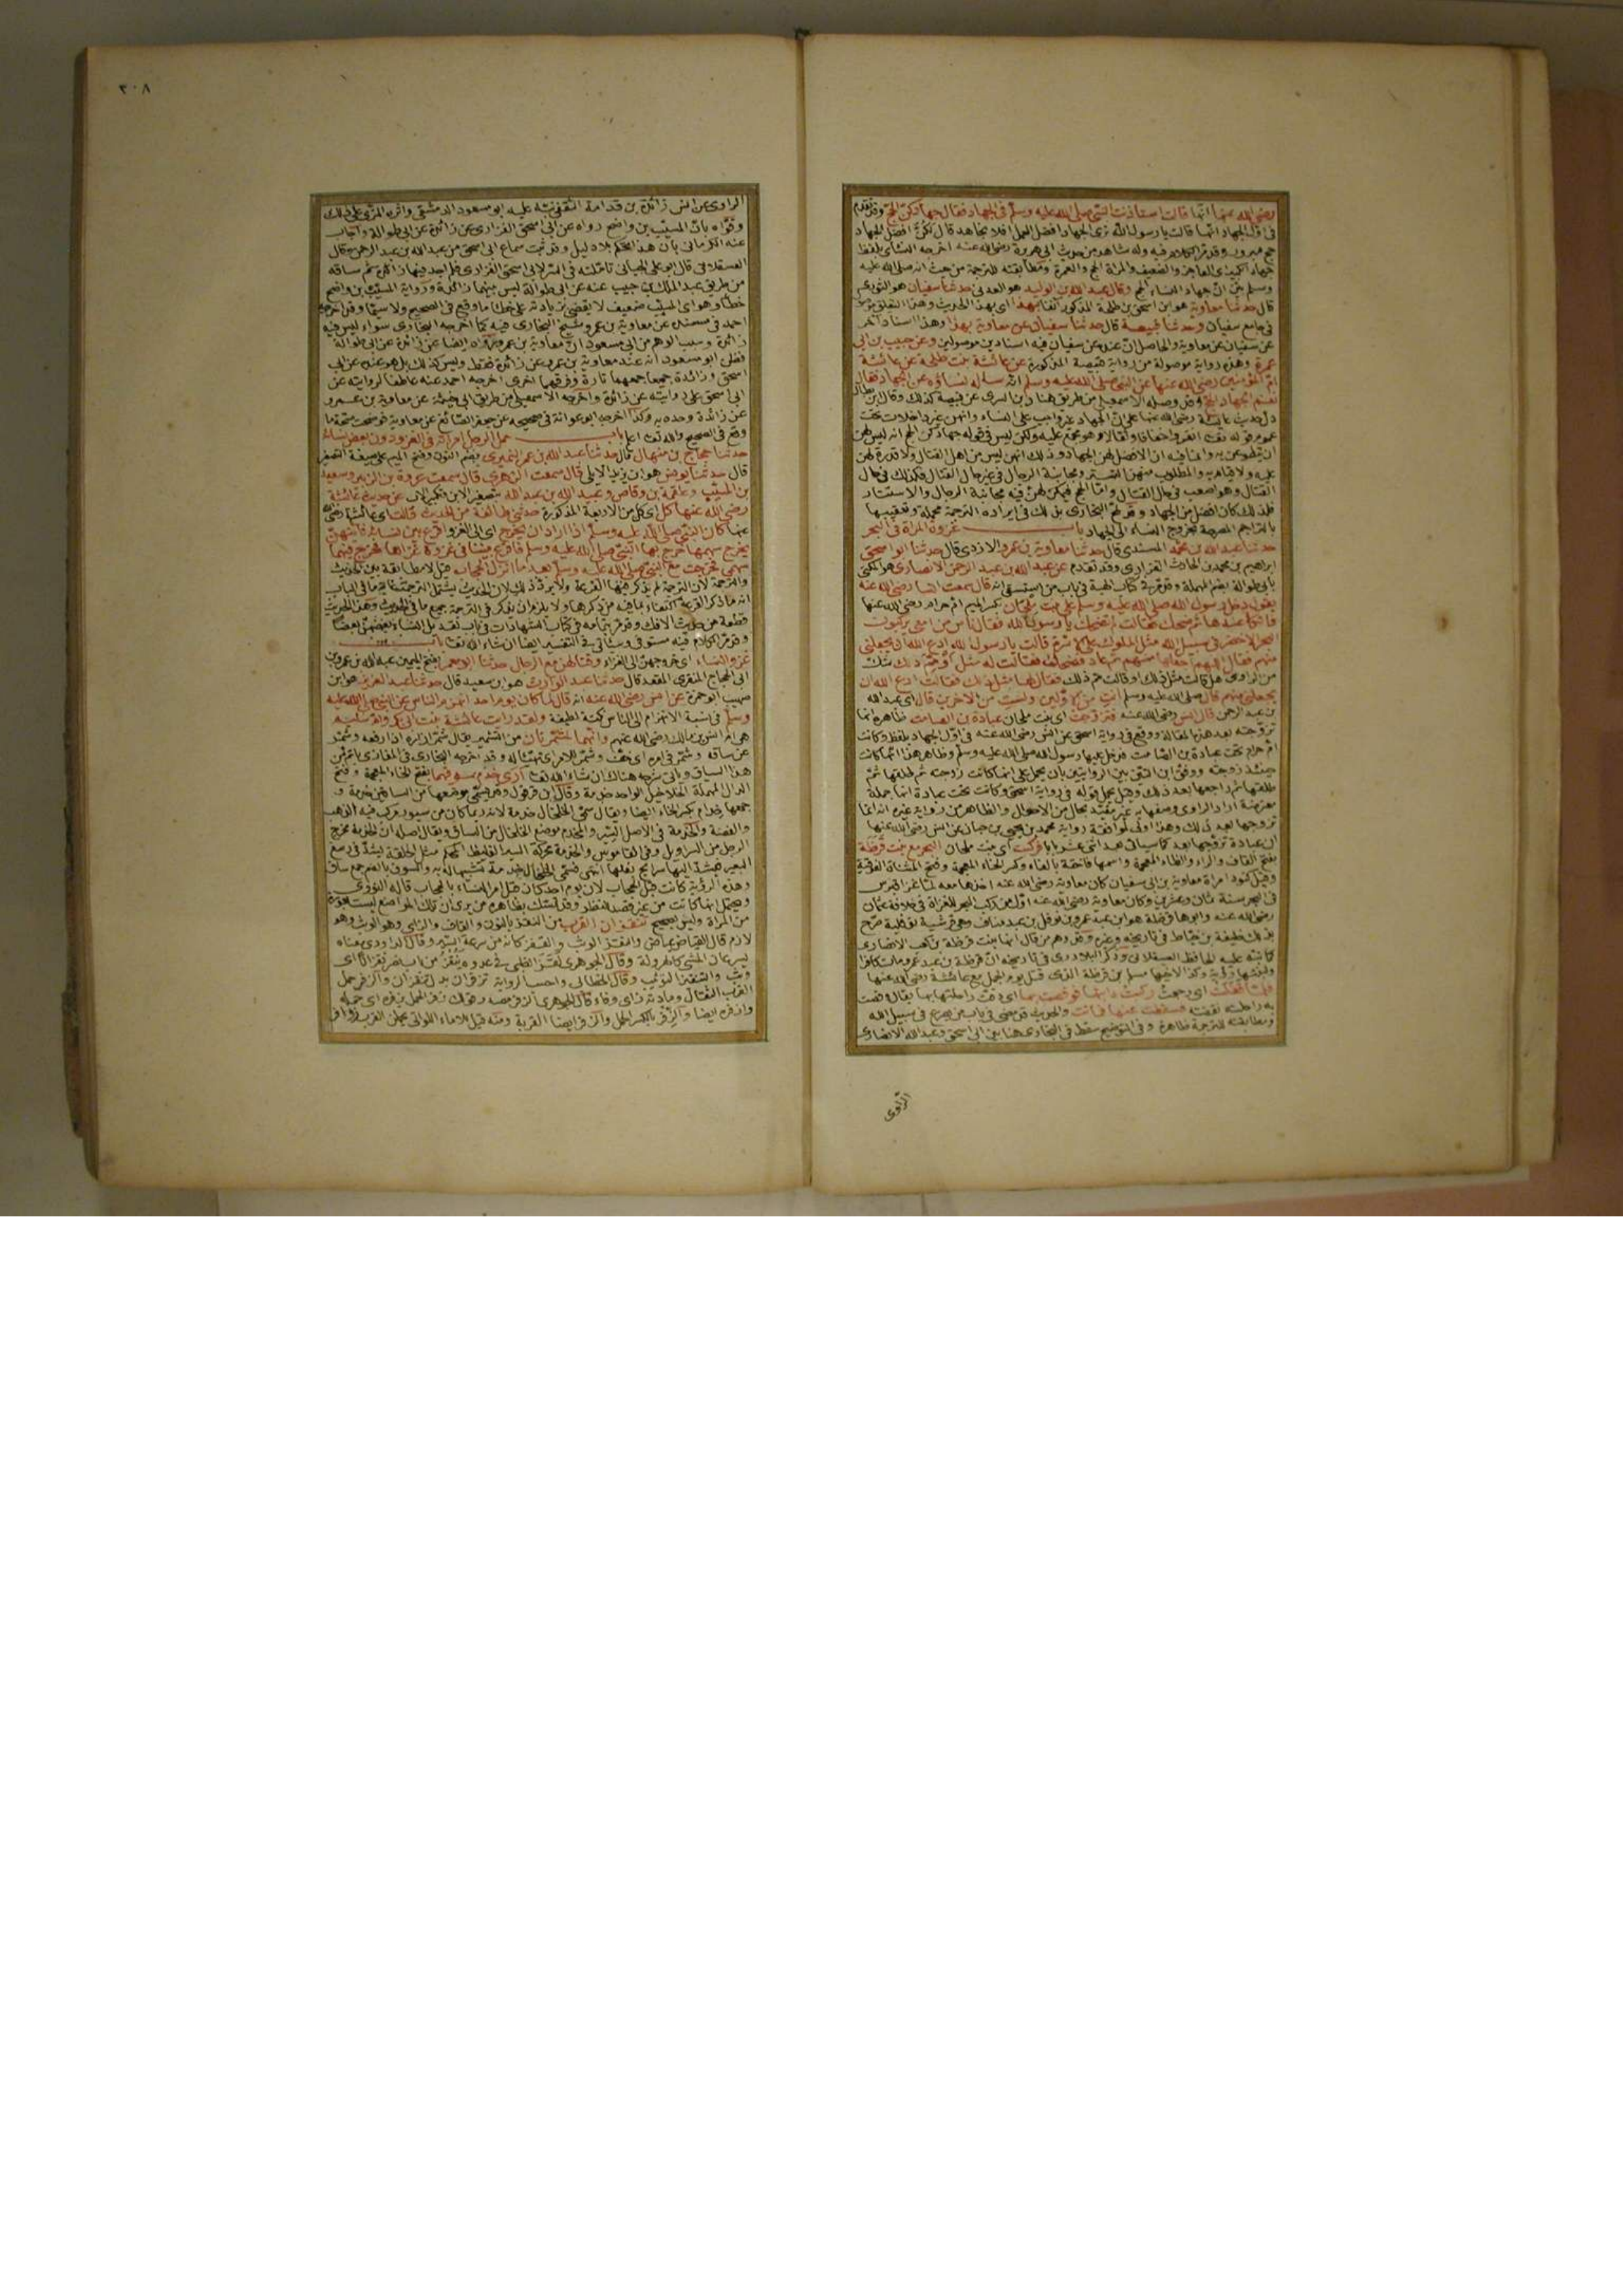 رضى الله عنها انها قالت استاذنت النبي صلى الله عليه وسلم في الجهاد فقال جهادكن الحج وقد تقدم
في اول الجهاد انها قالت يا رسول الله نرى الجهاد افضل العمل افلا نجاهد قال لكن افضل الجهاد
حج مبرور وقد مر الكلام فيه وله شاهد من حديث ابي هريرة رضي الله عنه اخرجه النسائي بلفظ
جهاد الكبير والعاجز والضعيف والمراة الحج والعمرة ومطابقته للترجمة من حيث انه صلى الله عليه
وسلم بين ان جهاد النساء الحج وقال عبد الله بن الوليد هو العدني حدثنا سفيان هو الثوري
قال حدثنا معاوية هو ابن اسحق بن طلحة المذكور آنفا بهذا اى بهذا الحديث وهذا التعليق
في جامع سفيان وحدثنا قبيصة قال حدثنا سفيان عن معاوية بهذا وهذا اسناد آخر
عن سفيان عن معاوية والحاصل ان عنده عن سفيان فيه اسنادين موصولين وعن حبيب بن ابي
عمرة وهذه رواية موصولة من رواية قبيصة المذكورة عن عائشة بنت طلحة عن عائشة
ام المؤمنين رضى الله عنها عن النبي صلى الله عليه وسلم انه ساله نساؤه عن الجهاد فقال
نعم الجهاد الحج وقد وصله الاسمعيلي من طريق هناد بن السري عن قبيصة كذلك وقال ابن بطال
دل حديث عائشة رضى الله عنها على ان الجهاد غير واجب على النساء وانهن غير داخلات تحت
عموم قوله تعالى انفروا خفافا وثقالا وهو مجمع عليه ولكن ليس في قوله جهادكن الحج انه ليس لهن
ان يتطوعن به وانما فيه ان الافضل لهن الجهاد وذلك انهن ليس من اهل القتال ولا قدرة لهن
عليه ولا قيام به والمطلوب منهن التستر ومجانبة الرجال في غير حال القتال فكذلك في حال
القتال وهو اصعب في حال القتال واما الحج فيمكن لهن فيه مجانبة الرجال والاستتار
فلذلك كان افضل من الجهاد وقد لمح البخاري بذلك في ايراده الترجمة مجملة وتعقيبها
بالتراجم المصرحة بخروج النساء الى الجهاد باب غزوة المراة في البحر
حدثنا عبد الله بن محمد المسندي قال حدثنا معاوية بن عمرو الازدي قال حدثنا ابو اسحق
ابراهيم بن محمد بن الحارث الفزاري وقد تقدم عن عبد الله بن عبد الرحمن الانصاري هو المكنى
بابي طوالة بضم المهملة وقد مر في كتاب الهبة في باب من استسقى انه قال سمعت انسا رضى الله عنه
يقول دخل رسول الله صلى الله عليه وسلم على بنت ملحان بكسر الميم ام حرام رضى الله عنها
فاتكا عندها ثم ضحك فقالت لم تضحك يا رسول الله فقال ناس من امتي يركبون
البحر الاخضر في سبيل الله مثلهم مثل الملوك على الاسرة قالت يا رسول الله ادع الله ان يجعلني
منهم فقال اللهم اجعلها منهم ثم عاد فضحك فقالت له مثل او مم ذلك شك
من الراوي هل قالت مثل ذلك او قالت مم ذلك فقال لها مثل ذلك فقالت ادع الله ان
يجعلني منهم قال صلى الله عليه وسلم انت من الاولين ولست من الآخرين قال اى عبد الله
بن عبد الرحمن قال انس رضى الله عنه فتزوجت اى بنت ملحان عبادة بن الصامت ظاهره انها
تزوجته بعد هذه المقالة ووقع في رواية اسحق عن انس رضى الله عنه في اول الجهاد بلفظ وكانت
ام حرام تحت عبادة بن الصامت فدخل عليها رسول الله صلى الله عليه وسلم وظاهر هذا انها كانت
حينئذ زوجته ووفق ابن التين بين الروايتين بان يحمل على انها كانت زوجته ثم طلقها ثم
راجعها بعد ذلك وقيل يحمل قوله في رواية اسحق وكانت تحت عبادة انها جملة
معترضة اراد الراوي وصفها به غير مقيد بحال من الاحوال والظاهر من رواية غيره انه انما
تزوجها بعد ذلك وهذا اولى لموافقة رواية محمد بن يحيى بن حبان عن انس رضى الله عنها
ان عبادة تزوجها بعد كما سياتي بعد اثنى عشر بابا فركبت اى بنت ملحان البحر مع بنت قرظة
بفتح القاف والراء والظاء المعجمة واسمها فاختة بالفاء وكسر الخاء المعجمة وفتح المثناة الفوقية
وقيل كنود امراة معاوية بن ابي سفيان كان معاوية رضى الله عنه اخذها معه لما غزا قبرس
في البحر سنة ثمان وعشرين وكان معاوية رضى الله عنه اول من ركب البحر للغزاة في خلافة عثمان
رضى الله عنه وابوها قرظة هو ابن عبد عمرو بن نوفل بن عبد مناف وهى قرشية نوفلية صرح
بذلك خليفة بن خياط في تاريخه وغيره وقد وهم من قال انها بنت قرظة بن كعب الانصاري
كما نبه عليه الحافظ العسقلاني وذكر البلاذري في تاريخه ان قرظة بن عبد عمرو مات كافرا
ولبنتها رؤية وكذا لاخيها مسلم بن قرظة الذى قتل يوم الجمل مع عائشة رضى الله عنها
فلما قفلت اى رجعت ركبت دابتها فوقصت بها
فسقطت عنها فماتت والحديث قد مضى في باب من يصرع في سبيل الله
ومطابقته للترجمة ظاهرة وفي التوضيح سقط في البخاري هنا بين ابي اسحق وعبد الله الانصاري
الراوى
٣٠٨
الراوى عن انس زائدة بن قدامة الثقفي نبه عليه ابو مسعود الدمشقي واقره المزى على ذلك
وقواه بان المسيب بن واضح رواه عن ابي اسحق الفزاري عن زائدة عن ابي طوالة واجاب
عنه الكرماني بان هذا تحكم بلا دليل وقد ثبت سماع ابي اسحق من عبد الله بن عبد الرحمن وقال
العسقلاني قال ابو على الجياني تاملته في السير لابي اسحق الفزاري فلم اجد فيها زائدة ثم ساقه
من طريق عبد الملك بن حبيب عنه عن ابي طوالة ليس بينهما زائدة ورواية المسيب بن واضح
خطا وهو اى المسيب ضعيف لا يقضى بزيادته على خطا ما وقع في الصحيح ولا سيما وقد اخرجه
احمد في مسنده عن معاوية بن عمرو شيخ البخاري فيه كما اخرجه البخاري سواء ليس فيه
زائدة وسبب الوهم من ابي مسعود ان معاوية بن عمرو رواه ايضا عن زائدة عن ابي طوالة
فظن ابو مسعود انه عند معاوية بن عمرو عن زائدة فقط وليس كذلك بل هو عنده عن ابي
اسحق وزائدة جميعا جمعهما تارة وفرقهما اخرى اخرجه احمد عنه عاطفا لروايته عن
ابي اسحق على روايته عن زائدة واخرجه الاسمعيلي من طريق ابي خيثمة عن معاوية بن عمرو
عن زائدة وحده به وكذا اخرجه ابو عوانة في صحيحه عن جعفر الصائغ عن معاوية فوضحت صحة ما
وقع في الصحيح والله تعالى اعلم باب حمل الرجل امراته في الغزو دون بعض نسائه
حدثنا حجاج بن منهال قال حدثنا عبد الله بن عمر النميري بضم النون وفتح الميم على صيغة التصغير
قال حدثنا يونس هو ابن يزيد الايلي قال سمعت الزهري قال سمعت عروة بن الزبير وسعيد
بن المسيب وعلقمة بن وقاص وعبيد الله بن عبد الله بتصغير الابن وتكبير الاب عن حديث عائشة
رضى الله عنها كل اى كل من الاربعة المذكورة حدثني طائفة من الحديث قالت اى عائشة رضى الله
عنها كان النبي صلى الله عليه وسلم اذا اراد ان يخرج اى الى الغزو اقرع بين نسائه فايتهن
يخرج سهمها خرج بها النبي صلى الله عليه وسلم فاقرع بيننا في غزوة غزاها فخرج فيها
سهمي فخرجت مع النبي صلى الله عليه وسلم بعد ما انزل الحجاب قيل لا مطابقة بين الحديث
والترجمة لان الترجمة لم يذكر فيها القرعة ولا يرد ذلك لان الحديث يشتمل الترجمة غاية ما في الباب
انه ما ذكر القرعة اكتفاء بما فيه من ذكرها ولا يلزم ان يذكر في الترجمة جميع ما في الحديث وهذا الحديث
قطعة من حديث الافك وقد مر بتمامه في كتاب الشهادات في باب تعديل النساء بعضهن بعضا
وقد مر الكلام فيه مستوفى وسياتي في التفسير ايضا ان شاء الله تعالى باب
غزو النساء اى خروجهن الى الغزاة وقتالهن مع الرجال حدثنا ابو معمر بفتح الميمين عبد الله بن عمرو بن
ابي الحجاج المنقري المقعد قال حدثنا عبد الوارث هو ابن سعيد قال حدثنا عبد العزيز هو ابن
صهيب ابو حمزة عن انس رضى الله عنه انه قال لما كان يوم احد انهزم الناس عن النبي صلى الله عليه
وسلم في نسبة الانهزام الى الناس نكتة لطيفة ولقد رايت عائشة بنت ابي بكر وام سليم
هى ام انس بن مالك رضى الله عنهم وانهما لمشمرتان من التشمير يقال شمر ازاره اذا رفعه وشمر
عن ساقه وشمر في امره اى خف وشمر للامر اى تهيا له وقد اخرجه البخاري في المغازي باتم من
هذا السياق وياتي شرحه هناك ان شاء الله تعالى ارى خدم سوقهما بفتح الخاء المعجمة وفتح
الدال المهملة الخلاخيل الواحد خدمة وقال ابن قرقول وقد يسمى موضعها من الساقين خدمة و
جمعها خدام بكسر الخاء ايضا ويقال سمى الخلخال خدمة لانه ربما كان من سيور يركب فيه الذهب
والفضة والخدمة في الاصل السير والمخدم موضع الخلخال من الساق ويقال اصله ان الخدمة مخرج
الرجل من السراويل وفي القاموس والخدمة محركة السير الغليظ المحكم مثل الحلقة يشد في رسغ
البعير فيشد اليها سرايح نعلها انتهى فسمى الخلخال خدمة تشبيها له به والسوق بالضم جمع ساق
وهذه الرؤية كانت قبل الحجاب لان يوم احد كان قبل امر النساء بالحجاب قاله النووي
ويحتمل انها كانت من غير قصد للنظر وقد تمسك بظاهره من يرى ان تلك المواضع ليست بعورة
من المراة وليس بصحيح تنقزان القرب من النقز بالنون والقاف والزاى وهو الوثب وهو
لازم قال القاضي عياض والنقز الوثب والقفز كانه من سرعة السير وقال الداودي معناه
يسرعان المشى كالهرولة وقال الجوهري نقز الظبى في عدوه ينقز نقزا ونقزانا اى
وثب والتنقيز التوثيب وقال الخطابي واحسب الرواية تزفران بدل تنقزان والزفر حمل
القرب الثقال ومادته زاى وفاء وراء قال الجوهري الزفر مصدر قولك زفر الحمل يزفره اى حمله
وازفره ايضا والزفر بالكسر الحمل والزفر ايضا القربة ومنه قيل للاماء اللواتي يحملن القرب زوافر